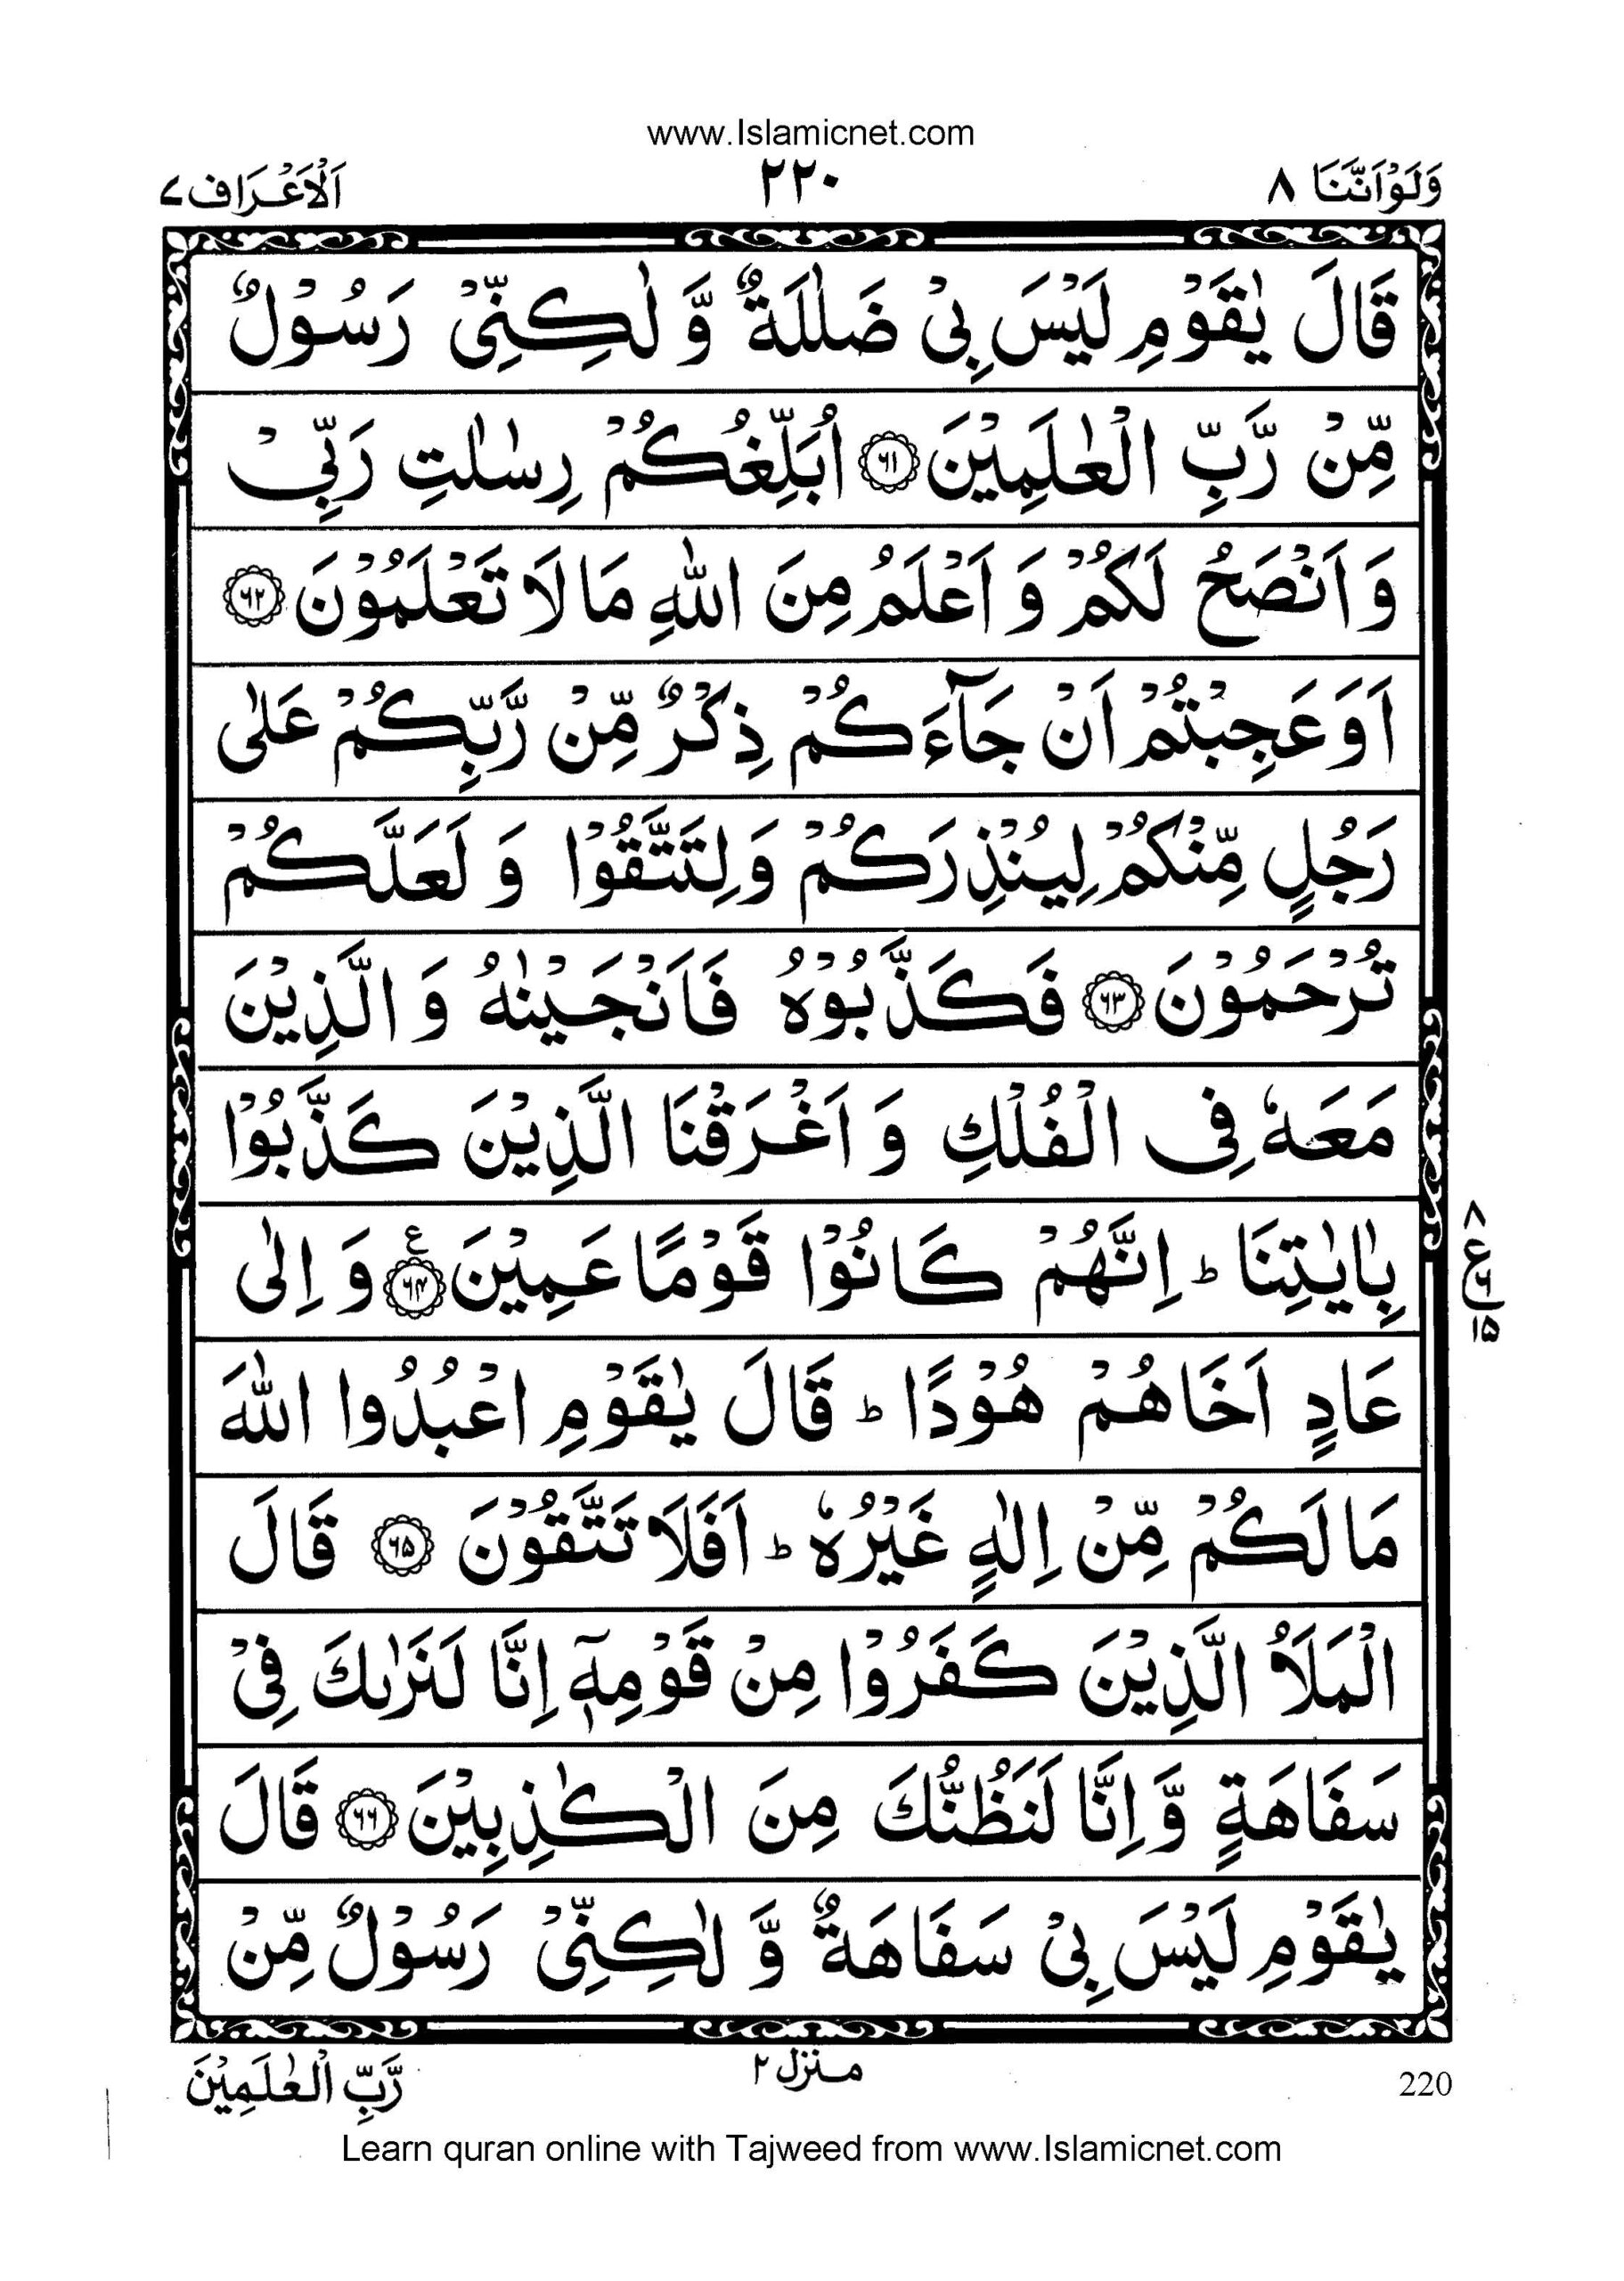 www.Islamicnet.com
وَلَوْاَنَّنَا ٨ ٢٢٠ اَلْاَعْرَاف ٧
قَالَ يٰقَوْمِ لَيْسَ بِىْ ضَلٰلَةٌ وَّ لٰكِنِّىْ رَسُوْلٌ
مِّنْ رَّبِّ الْعٰلَمِيْنَ ۝٦١ اُبَلِّغُكُمْ رِسٰلٰتِ رَبِّىْ
وَ اَنْصَحُ لَكُمْ وَ اَعْلَمُ مِنَ اللّٰهِ مَا لَا تَعْلَمُوْنَ ۝٦٢
اَوَعَجِبْتُمْ اَنْ جَآءَكُمْ ذِكْرٌ مِّنْ رَّبِّكُمْ عَلٰى
رَجُلٍ مِّنْكُمْ لِيُنْذِرَكُمْ وَلِتَتَّقُوْا وَ لَعَلَّكُمْ
تُرْحَمُوْنَ ۝٦٣ فَكَذَّبُوْهُ فَاَنْجَيْنٰهُ وَ الَّذِيْنَ
مَعَهٗ فِى الْفُلْكِ وَ اَغْرَقْنَا الَّذِيْنَ كَذَّبُوْا
بِاٰيٰتِنَا ؕ اِنَّهُمْ كَانُوْا قَوْمًا عَمِيْنَ ۝٦٤ ع وَ اِلٰى
عَادٍ اَخَاهُمْ هُوْدًا ؕ قَالَ يٰقَوْمِ اعْبُدُوا اللّٰهَ
مَا لَكُمْ مِّنْ اِلٰهٍ غَيْرُهٗ ؕ اَفَلَا تَتَّقُوْنَ ۝٦٥ قَالَ
الْمَلَاُ الَّذِيْنَ كَفَرُوْا مِنْ قَوْمِهٖۤ اِنَّا لَنَرٰىكَ فِىْ
سَفَاهَةٍ وَّ اِنَّا لَنَظُنُّكَ مِنَ الْكٰذِبِيْنَ ۝٦٦ قَالَ
يٰقَوْمِ لَيْسَ بِىْ سَفَاهَةٌ وَّ لٰكِنِّىْ رَسُوْلٌ مِّنْ
٨
ع ٦
١٥
220 منزل ٢ رَّبِّ الْعٰلَمِيْنَ
Learn quran online with Tajweed from www.Islamicnet.com